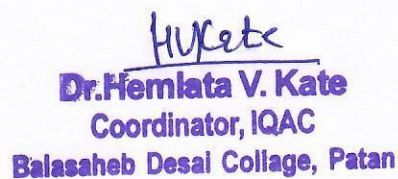 HVKate
Dr.Hemlata V. Kate
Coordinator, IQAC
Balasaheb Desai Collage, Patan